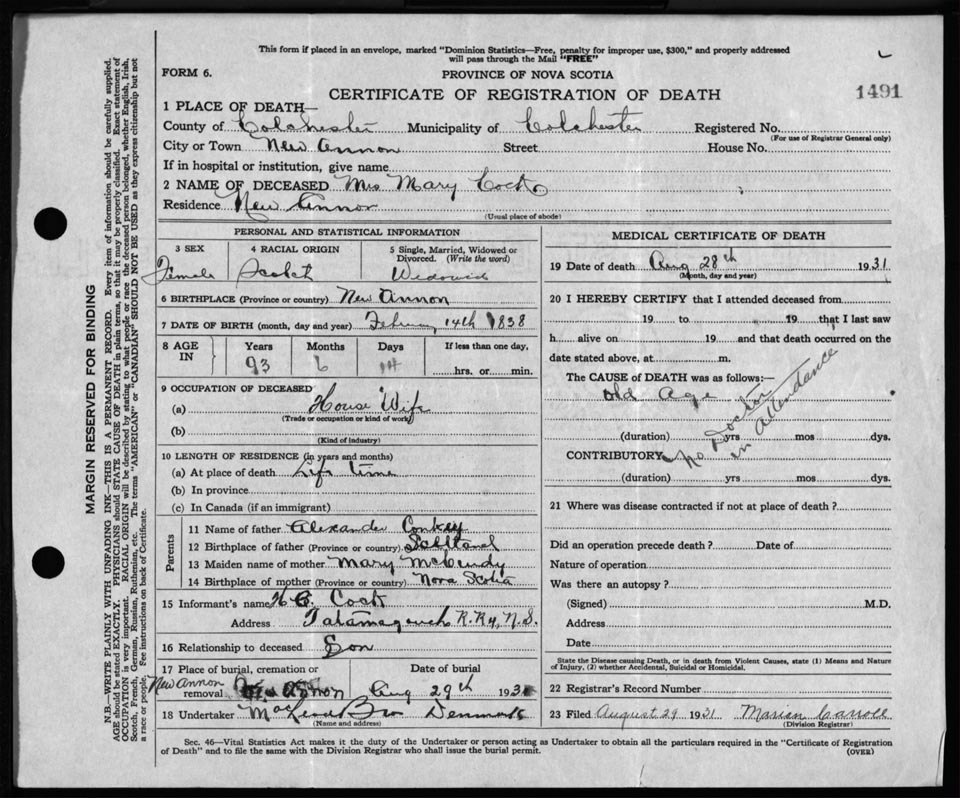 This form if placed in an envelope, marked "Dominion Statistics—Free, penalty for improper use, $300," and properly addressed
will pass through the Mail "FREE"
FORM 6.
PROVINCE OF NOVA SCOTIA
CERTIFICATE OF REGISTRATION OF DEATH
1491
1 PLACE OF DEATH—
County of Colchester Municipality of Colchester Registered No.
(For use of Registrar General only)
City or Town New Annon Street House No.
If in hospital or institution, give name
2 NAME OF DECEASED Mrs Mary Cock
Residence New Annon
(Usual place of abode)
PERSONAL AND STATISTICAL INFORMATION
3 SEX 4 RACIAL ORIGIN 5 Single, Married, Widowed or
Divorced. (Write the word)
Female Widowed
6 BIRTHPLACE (Province or country) New Annon
7 DATE OF BIRTH (month, day and year) 14th 1838
8 AGE IN Years Months Days If less than one day,
93 6 14 hrs. or min.
9 OCCUPATION OF DECEASED
(a) House Wife
(Trade or occupation or kind of work)
(b)
(Kind of industry)
10 LENGTH OF RESIDENCE (in years and months)
(a) At place of death Life time
(b) In province
(c) In Canada (if an immigrant)
Parents
11 Name of father Alexander Conkey
12 Birthplace of father (Province or country) Scotland
13 Maiden name of mother Mary
14 Birthplace of mother (Province or country) Nova Scotia
15 Informant's name Cock
Address Tatamagouch R.R4, N.S.
16 Relationship to deceased Son
17 Place of burial, cremation or removal Date of burial
New Annon Aug 29th 1931
18 Undertaker Bro Denmark
(Name and address)
MEDICAL CERTIFICATE OF DEATH
19 Date of death Aug 28th 1931
(Month, day and year)
20 I HEREBY CERTIFY that I attended deceased from
19 to 19 that I last saw
h alive on 19 and that death occurred on the
date stated above, at m.
The CAUSE of DEATH was as follows:—
Old Age
No Doctor
in attendance
(duration) yrs mos dys.
CONTRIBUTORY
(duration) yrs mos dys.
21 Where was disease contracted if not at place of death?
Did an operation precede death? Date of
Nature of operation
Was there an autopsy?
(Signed) M.D.
Address
Date
State the Disease causing Death, or in death from Violent Causes, state (1) Means and Nature
of Injury, (2) whether Accidental, Suicidal or Homicidal.
22 Registrar's Record Number
23 Filed August 29 1931 Marion Carroll
(Division Registrar)
Sec. 46—Vital Statistics Act makes it the duty of the Undertaker or person acting as Undertaker to obtain all the particulars required in the "Certificate of Registration
of Death" and to file the same with the Division Registrar who shall issue the burial permit.
(OVER)
MARGIN RESERVED FOR BINDING
N.B.—WRITE PLAINLY WITH UNFADING INK—THIS IS A PERMANENT RECORD. Every item of information should be carefully supplied.
AGE should be stated EXACTLY. PHYSICIANS should STATE CAUSE OF DEATH in plain terms, so that it may be properly classified. Exact statement of
OCCUPATION is very important. RACIAL ORIGIN will be described by stating to what people or race the deceased person belonged, whether English, Irish,
Scotch, French, German, Russian, Ruthenian, etc. The terms "AMERICAN" or "CANADIAN" SHOULD NOT BE USED as they express citizenship but not
a race or people. Fee instructions on back of Certificate.